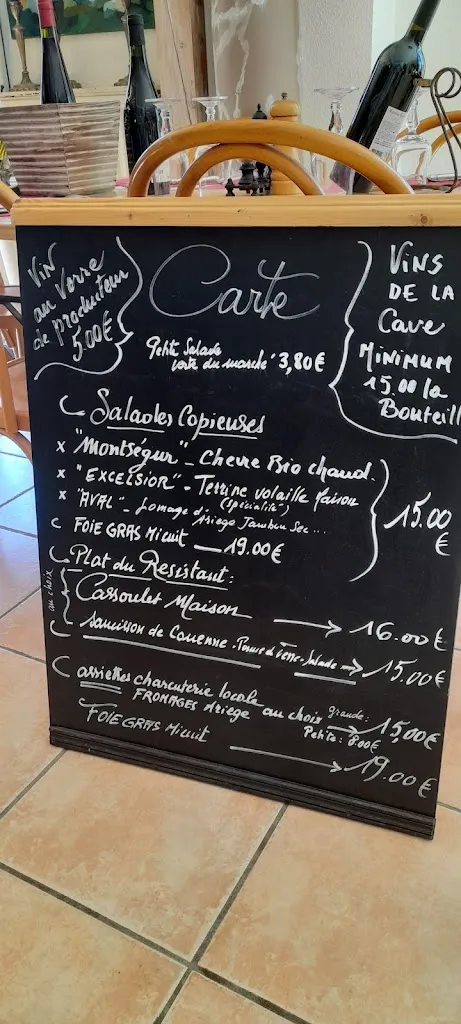 Vin
au Verre
de producteur
5.00€
Carte
Vins
DE LA
Cave
Minimum
15.00 la
Bouteill
Petite Salade
"du marché" 3,80€
Salades Copieuses
x "Montségur" - Chevre Bio chaud.
x "EXCELSIOR" - Terrine volaille Maison
(spécialité)
x "AVAL" - Fromage d'Ariege Jambon Sec ...
15.00
€
FOIE GRAS Micuit — 19.00€
Plat du Resistant:
au choix
Cassoulet Maison → 16.00€
Saucisson de Couenne - Pomme d Terre - Salade → 15.00€
assiettes charcuterie locale
FROMAGES Ariege au choix Grande: → 15,00€
Petite: 8.00€
FOIE GRAS Micuit → 19.00€